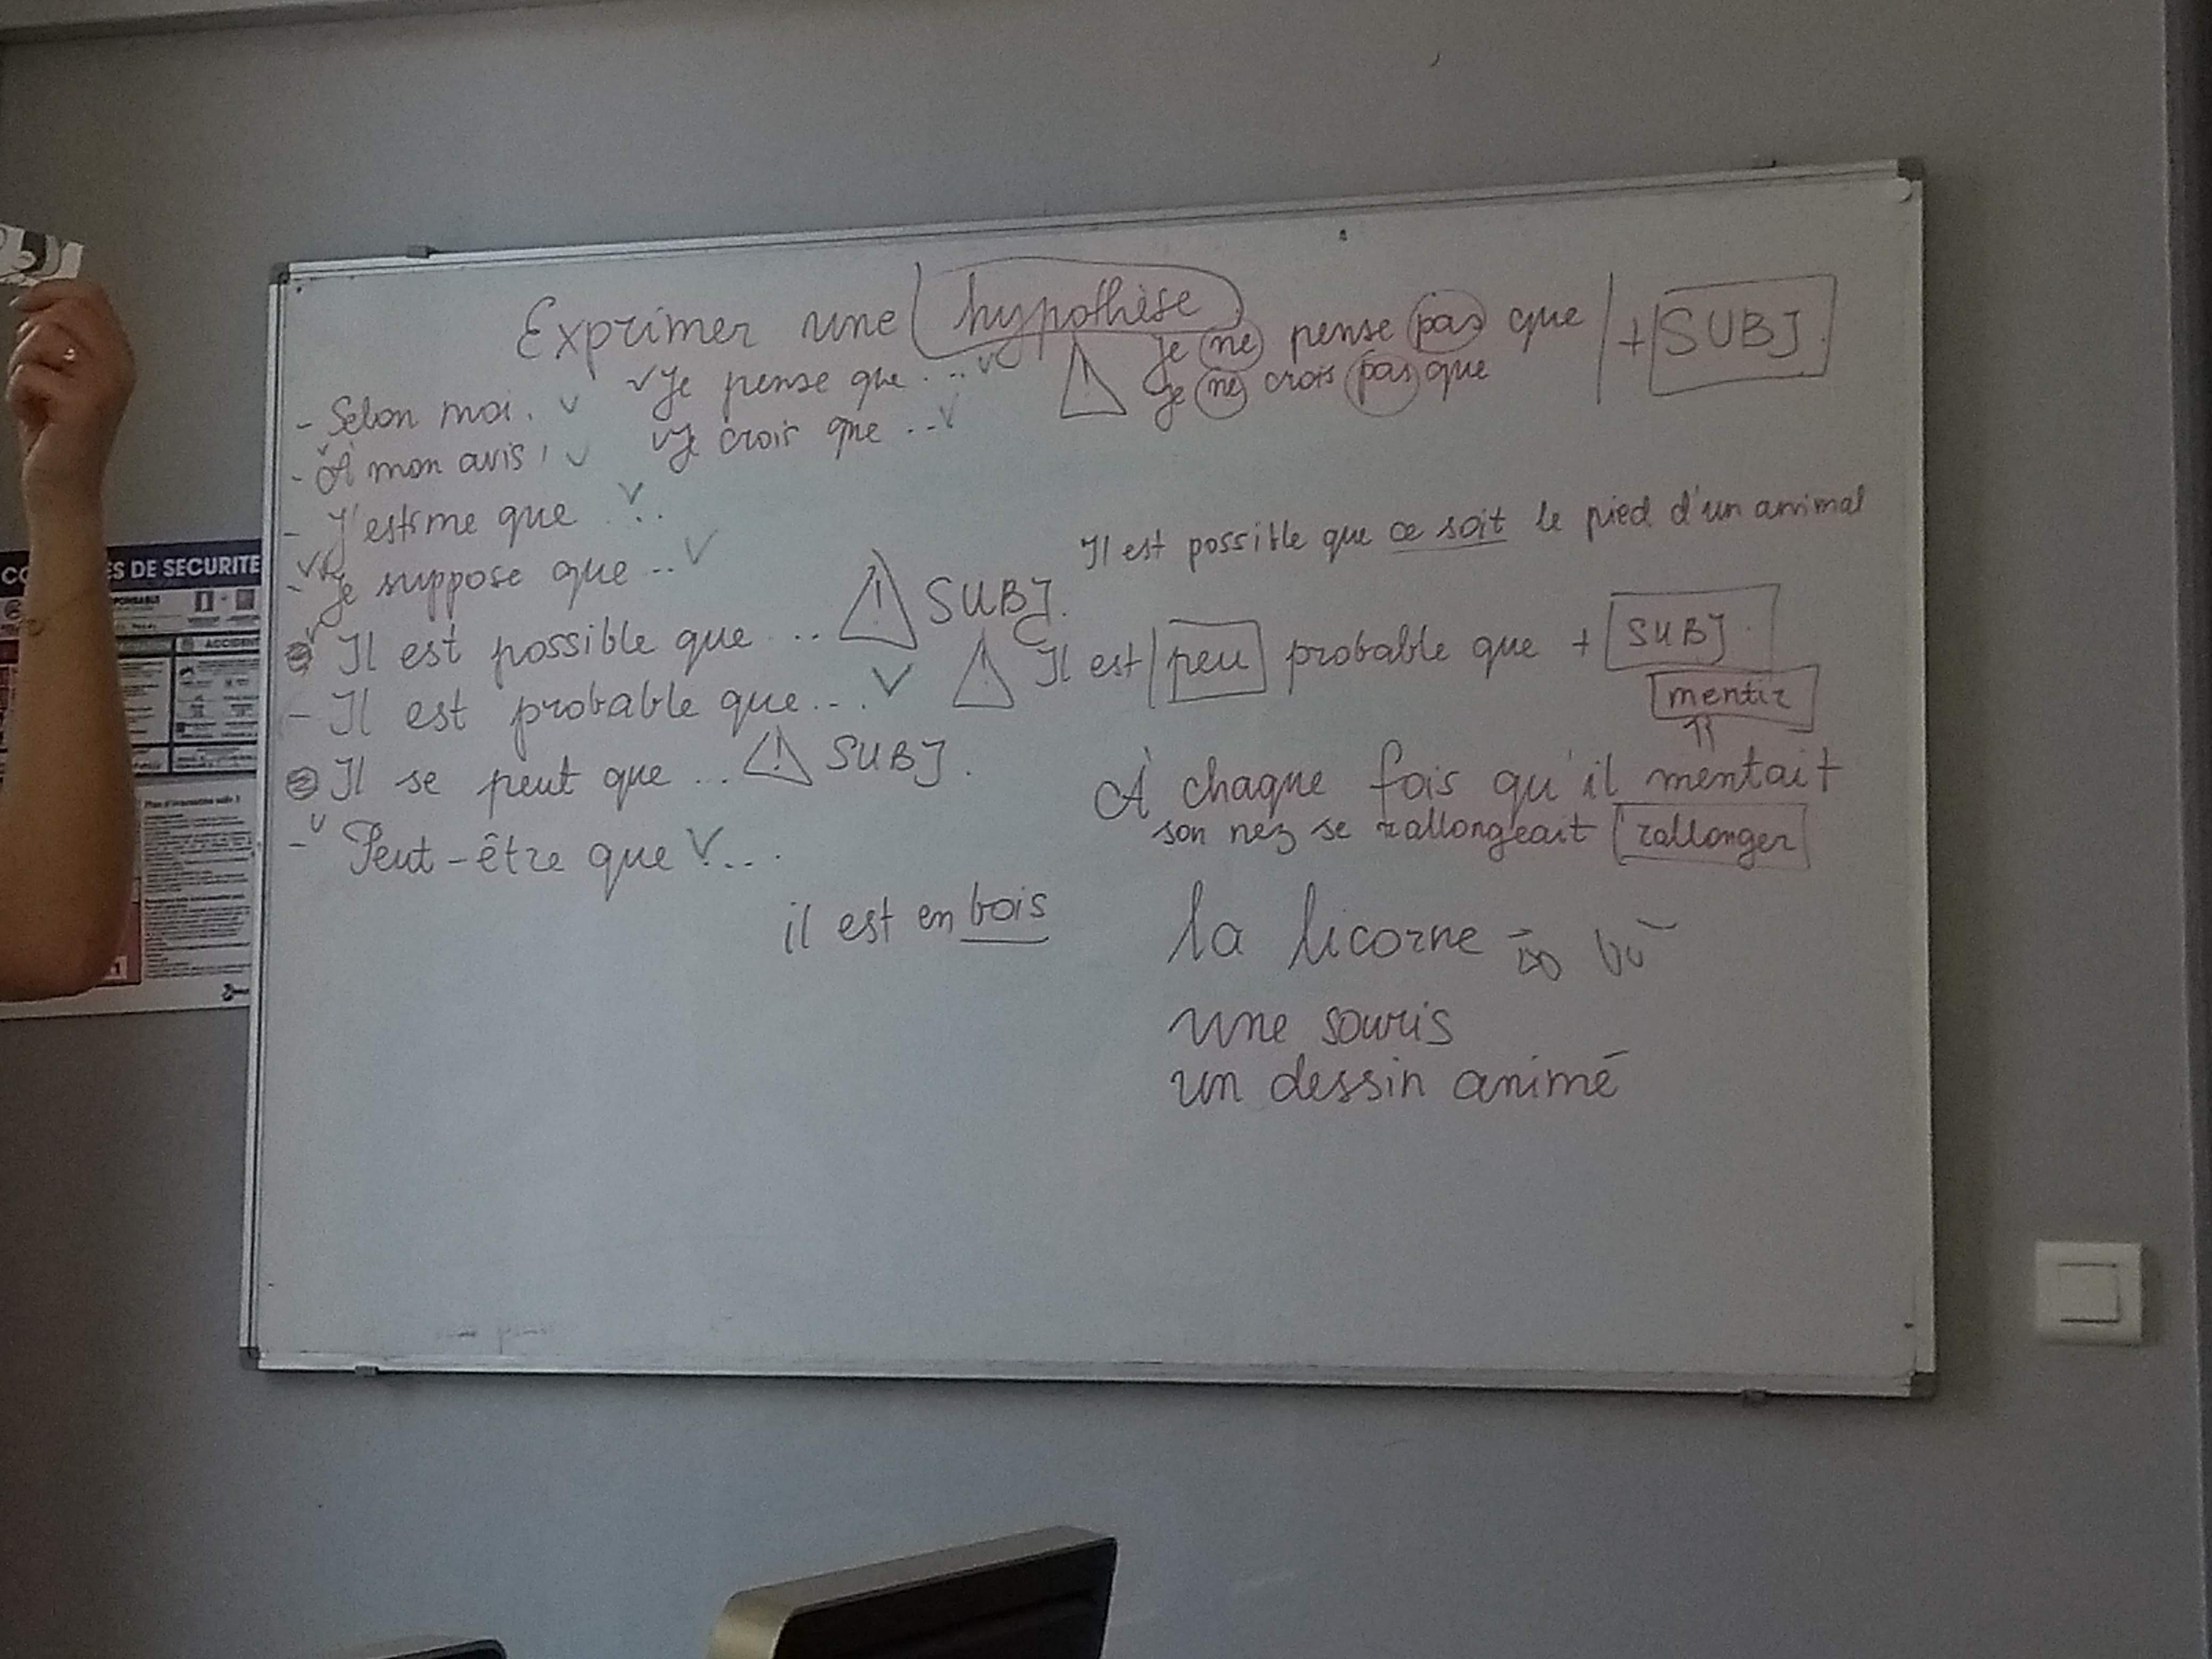 Exprimer une hypothèse
- Selon moi.
- À mon avis,
- J'estime que ...
- Je suppose que ...
Il est possible que ... ! SUBJ.
- Il est probable que ...
Il se peut que ... ! SUBJ.
- Peut-être que ...
Je pense que ...
Je crois que ...
! Je ne pense pas que
Je ne crois pas que
+ SUBJ.
Il est possible que ce soit le pied d'un animal
! Il est peu probable que + SUBJ.
mentir
À chaque fois qu'il mentait
son nez se rallongeait rallonger
il est en bois
la licorne
une souris
un dessin animé
S DE SECURITE
ACCIDENT